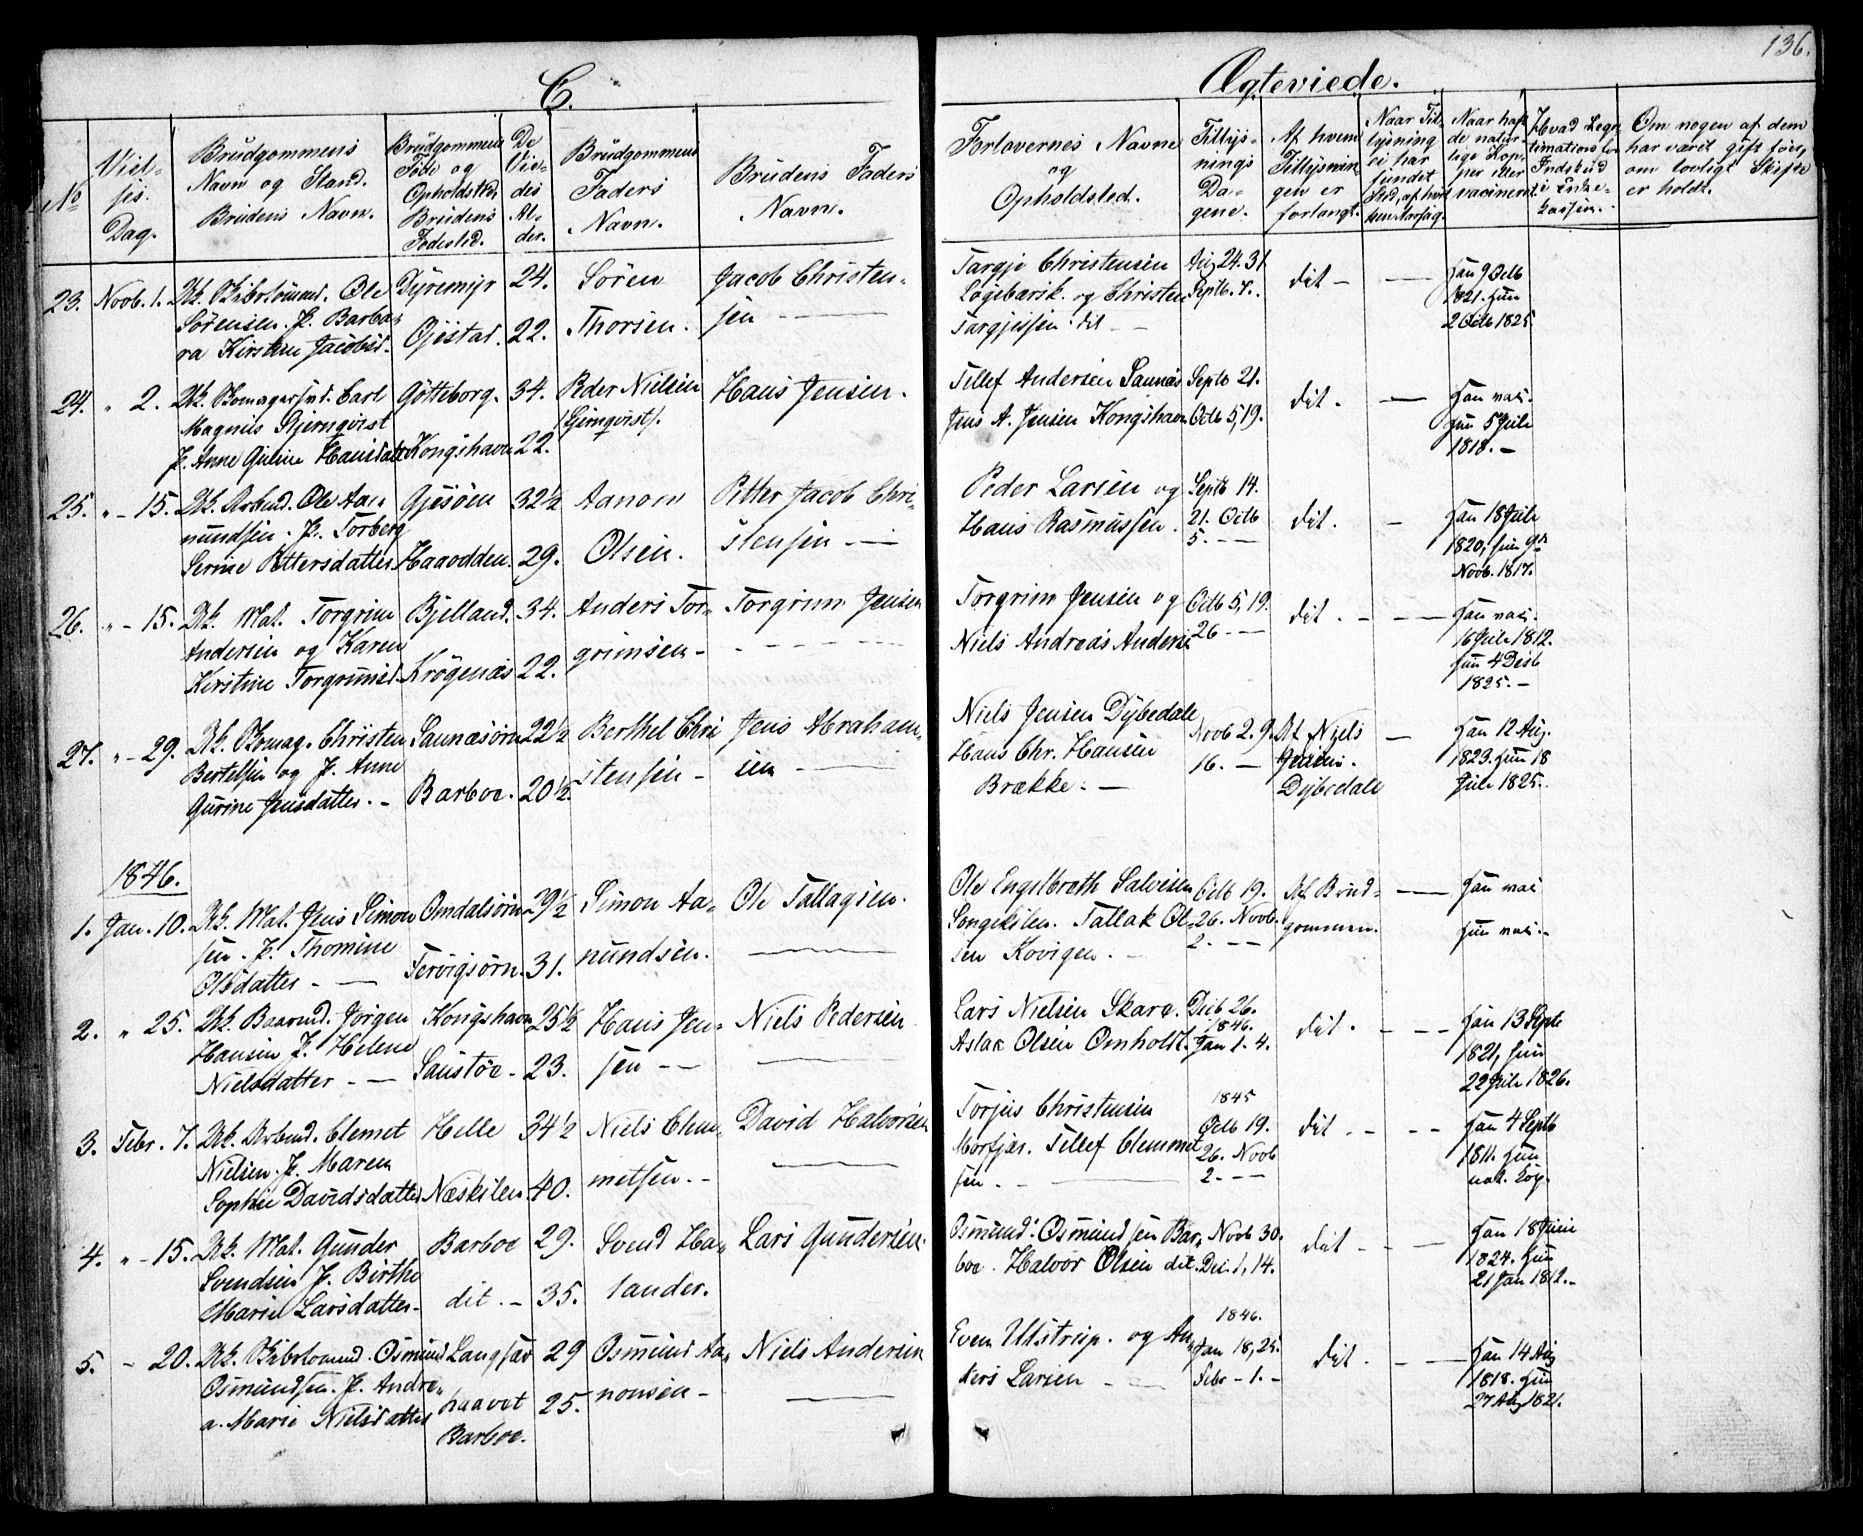 136.
C.
Ægteviede.
No
Viel-
ses.
Dag.
Brudgommens
Navn og Stand.
Brudens Navn.
Brudgommens
Føde og
Opholdssted
Brudens
Fødested.
De
Vie-
des
Al-
der.
Brudgommens
Faders
Navn.
Brudens Faders
Navn.
Forlovernes Navne
og
Opholdsted.
Tillys-
nings
Da-
gene.
Af hvem
Tillysnin-
gen er
forlangt.
Naar Til-
lysning
ei har
fundet
Sted, af hvil-
ken Aarsag.
Naar hav-
de natur-
lige Kop-
per eller
vaccineret
Hvad Legi-
timations
Indskud
i Enke-
kassen.
Om nogen af dem
har været gift før,
om lovligt Skifte
er holdt.
23. Novb. 1.
Ole
Sørensen. P. Barba-
ra Kirsten Jacobsd.
Dyremyr
Gjestad.
24.
22.
Søren
Thorsen.
Jacob Christen-
sen
Targje Christensen
og Christen
Targjessen. dit
Aug 24. 31
Septb. 7.
dit
han 9 Octb
1821. hun
2 Octb 1825
24. " 2.
Carl
Magnus Stjernqvist
P. Anne Guline Hansdatter
Gøtteborg.
Kongshavn
34.
22.
Peder Nielsen
Hans Jensen.
Tellef Andersen Saunæs
Jens A. Jensen Kongshavn
Septb 21.
Octb 5, 19.
dit.
han vac.
hun 5 Juli
1818.
25. " 15.
Ole Aa-
nundsen. P. Torberg
Serine Pettersdatter
Gjesøen
Haaodden.
32½
29.
Aanon
Olsen.
Petter Jacob Chri-
stensen
Peder Larsen og
Hans Rasmussen.
Septb 14.
21. Octb
5.
dit.
han 18 Juli
1820, hun
Novb. 1817.
26. " 15.
Uk. Mat. Torgrim
Andersen og Karen
Kirstine Torgrimsd.
Bjelland.
Krøgenæs
34.
22.
Anders Tor-
grimsen
Torgrim Jensen
Torgrim Jensen og
Niels Andreas Anders
Octb 5, 19.
26
dit.
han vac.
16 Juli 1812.
hun 4 Decb
1825.
27. " 29.
Christen
Bertelsen og P. Anne
Gurine Jensdatter.
Saunæsøen
Barboe.
22½
20½
Berthel Chri
stensen
Jens Abraham-
sen
Niels Jensen Dybedale
Hans Chr. Hansen
Brække.
Novb 2. 9.
16.
Af Niels
Jensen
Dybedale
han 12 Aug.
1823. hun 18
Juli 1825.
1846.
1. Jan. 10.
Uk. Mat. Jens Simon
sen. P. Thomine
Olsdatter
Omdalsøren
31.
29½
Simon Aa-
nundsen.
Ole Tallagsen.
Ole Engelbreth Salvesen
Songekilen. Tallak Ol-
sen Kovigen.
Octb 19.
26. Novb.
2.
Af Brud-
gommen.
han vac
hun vac.
2. " 25.
Jørgen
Hansen P. Helene
Nielsdatter
Kongshavn
Saustøe
25½
23.
Hans Jen-
sen
Niels Pedersen
Lars Nielsen Skare.
Aslak Olsen Omholdt.
Decb 26.
1846.
Jan 1. 4.
dit.
han 13 Septb
1821, hun
22 Juli 1826.
3. Febr. 7.
Clemet
Nielsen. P. Maren
Sophie Davidsdatter
Helle
Næskilen.
34½
40.
Niels Clem-
metsen.
David Halvorsen
Torjus Christensen
Morfjær. Tellef Clemmet
sen.
1845
Octb 19.
26. Novb
2.
dit
han 4 Septb
1811. hun
nat. Kop.
4. " 15.
Uk. Mat. Gunder
Svendsen P. Birthe
Marie Larsdatter
Barboe
dit.
29.
35.
Svend Ha-
lander.
Lars Gundersen.
Osmund Osmundsen Bar-
boe. Halvor Olsen dit.
Novb 30.
Dec. 1, 14.
dit.
han 18 Juni
1824. hun
21 Jan 1812.
5. 20.
Osmund
Osmundsen. P. Andre-
a. Marie Nielsdatter
Langsæ
haavet
Barboe.
29
25.
Osmund Aa-
nonsen
Niels Andersen
Even Ulstrup. og An-
ders Larsen
1846.
Jan 18, 25.
Febr 1.
dit.
han 14 Aug
1818. hun
27 Aug 1821.